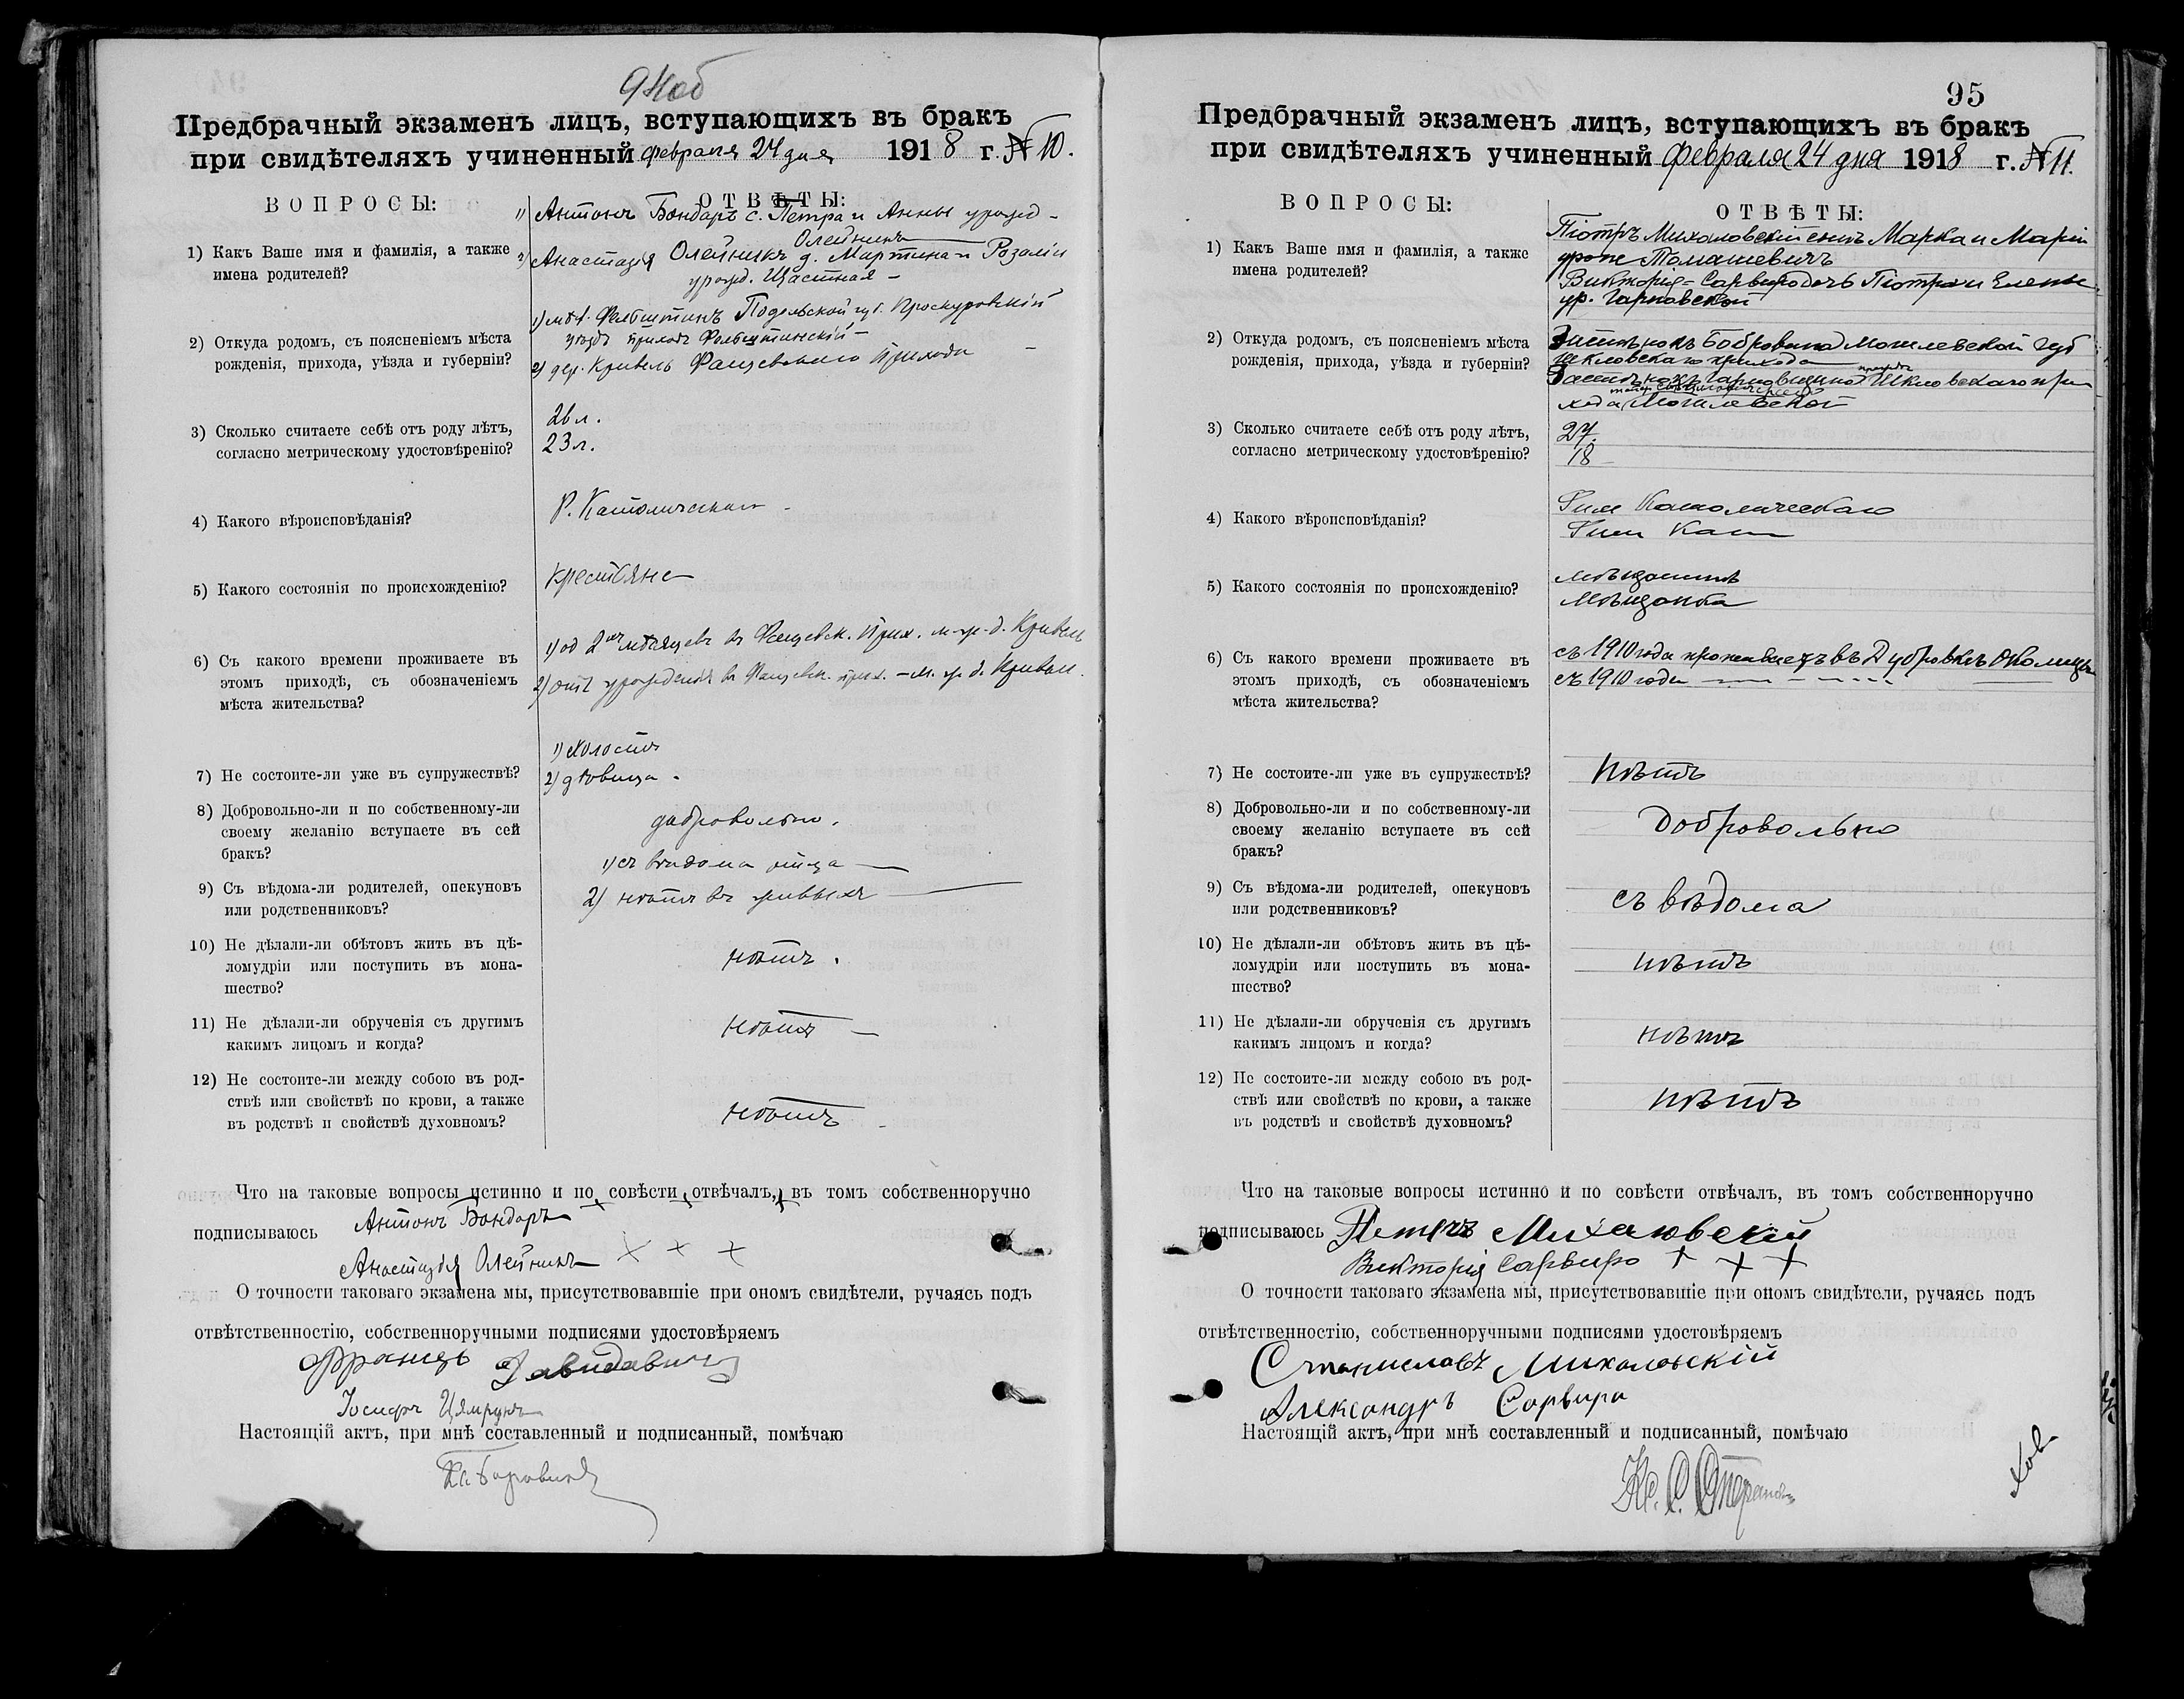 94об
Предбрачный экзаменъ лицъ, вступающихъ въ бракъ
при свидѣтеляхъ учиненный февраля 24 дня 1918 г. № 10.
ВОПРОСЫ:
ОТВѢТЫ:
1) Какъ Ваше имя и фамилія, а также
имена родителей?
1) Антонъ Бондарь с. Петра и Анны урожд-
Олейникъ
2) Анастазія Олейникъ д. Мартина и Розаліи
урожд. Щастная -
2) Откуда родомъ, съ поясненіемъ мѣста
рожденія, прихода, уѣзда и губерніи?
1) мѣст. Фельштинъ Подольской губ. Проскуровскій
уѣздъ приходъ Фельштинскій -
2) дер. Кривель Фащевскаго прихода -
3) Сколько считаете себѣ отъ роду лѣтъ,
согласно метрическому удостовѣренію?
26 л.
23 л.
4) Какого вѣроисповѣданія?
Р. Католическаго -
5) Какого состоянія по происхожденію?
Крестьяне
6) Съ какого времени проживаете въ
этомъ приходѣ, съ обозначеніемъ
мѣста жительства?
1) од 2ухъ мѣсяцевъ въ Фащевск. прих. м-ж-д. Кривель
2) отъ урожденія въ Фащевск. прих. - м. ж. д. Кривель.
7) Не состоите-ли уже въ супружествѣ?
1) холостъ
2) дѣвица.
8) Добровольно-ли и по собственному-ли
своему желанію вступаете въ сей
бракъ?
добровольно.
9) Съ вѣдома-ли родителей, опекуновъ
или родственниковъ?
1) съ вѣдома отца
2) нѣтъ въ живыхъ
10) Не дѣлали-ли обѣтовъ жить въ цѣ-
ломудріи или поступить въ мона-
шество?
нѣтъ.
11) Не дѣлали-ли обрученія съ другимъ
какимъ лицомъ и когда?
нѣтъ -
12) Не состоите-ли между собою въ род-
ствѣ или свойствѣ по крови, а также
въ родствѣ и свойствѣ духовномъ?
нѣтъ -
Что на таковые вопросы истинно и по совѣсти отвѣчалъ, въ томъ собственноручно
подписываюсь Антонъ Бондарь + + +
Анастазія Олейникъ + + +
О точности таковаго экзамена мы, присутствовавшіе при ономъ свидѣтели, ручаясь подъ
отвѣтственностію, собственноручными подписями удостовѣряемъ
Францъ Давидавичъ
Іосифъ
Настоящій актъ, при мнѣ составленный и подписанный, помѣчаю
95
Предбрачный экзаменъ лицъ, вступающихъ въ бракъ
при свидѣтеляхъ учиненный февраля 24 дня 1918 г. № 11.
ВОПРОСЫ:
ОТВѢТЫ:
1) Какъ Ваше имя и фамилія, а также
имена родителей?
Піотръ Михаловскій сынъ Марка и Маріи
урож Томашевичъ
Викторія - Сарвиро дочь Піотра и Елены
ур. Гарновской
2) Откуда родомъ, съ поясненіемъ мѣста
рожденія, прихода, уѣзда и губерніи?
Застѣнокъ Могилевской губ
Шкловскаго прихода
Застѣнокъ Шкловскаго при
хода Могилевской
3) Сколько считаете себѣ отъ роду лѣтъ,
согласно метрическому удостовѣренію?
27.
18
4) Какого вѣроисповѣданія?
Рим Католическаго
Рим Кат
5) Какого состоянія по происхожденію?
мѣщанинъ
мѣщанка
6) Съ какого времени проживаете въ
этомъ приходѣ, съ обозначеніемъ
мѣста жительства?
съ 1910 года проживаетъ въ Дубровкѣ Околицѣ
съ 1910 года — - - -
7) Не состоите-ли уже въ супружествѣ?
нѣтъ
8) Добровольно-ли и по собственному-ли
своему желанію вступаете въ сей
бракъ?
добровольно
9) Съ вѣдома-ли родителей, опекуновъ
или родственниковъ?
съ вѣдома
10) Не дѣлали-ли обѣтовъ жить въ цѣ-
ломудріи или поступить въ мона-
шество?
нѣтъ
11) Не дѣлали-ли обрученія съ другимъ
какимъ лицомъ и когда?
нѣтъ
12) Не состоите-ли между собою въ род-
ствѣ или свойствѣ по крови, а также
въ родствѣ и свойствѣ духовномъ?
нѣтъ
Что на таковые вопросы истинно и по совѣсти отвѣчалъ, въ томъ собственноручно
подписываюсь Петръ Михаловскій
Викторія Сарвиро + + +
О точности таковаго экзамена мы, присутствовавшіе при ономъ свидѣтели, ручаясь подъ
отвѣтственностію, собственноручными подписями удостовѣряемъ
Станиславъ Михаловскій
Александръ Сорвиро
Настоящій актъ, при мнѣ составленный и подписанный, помѣчаю